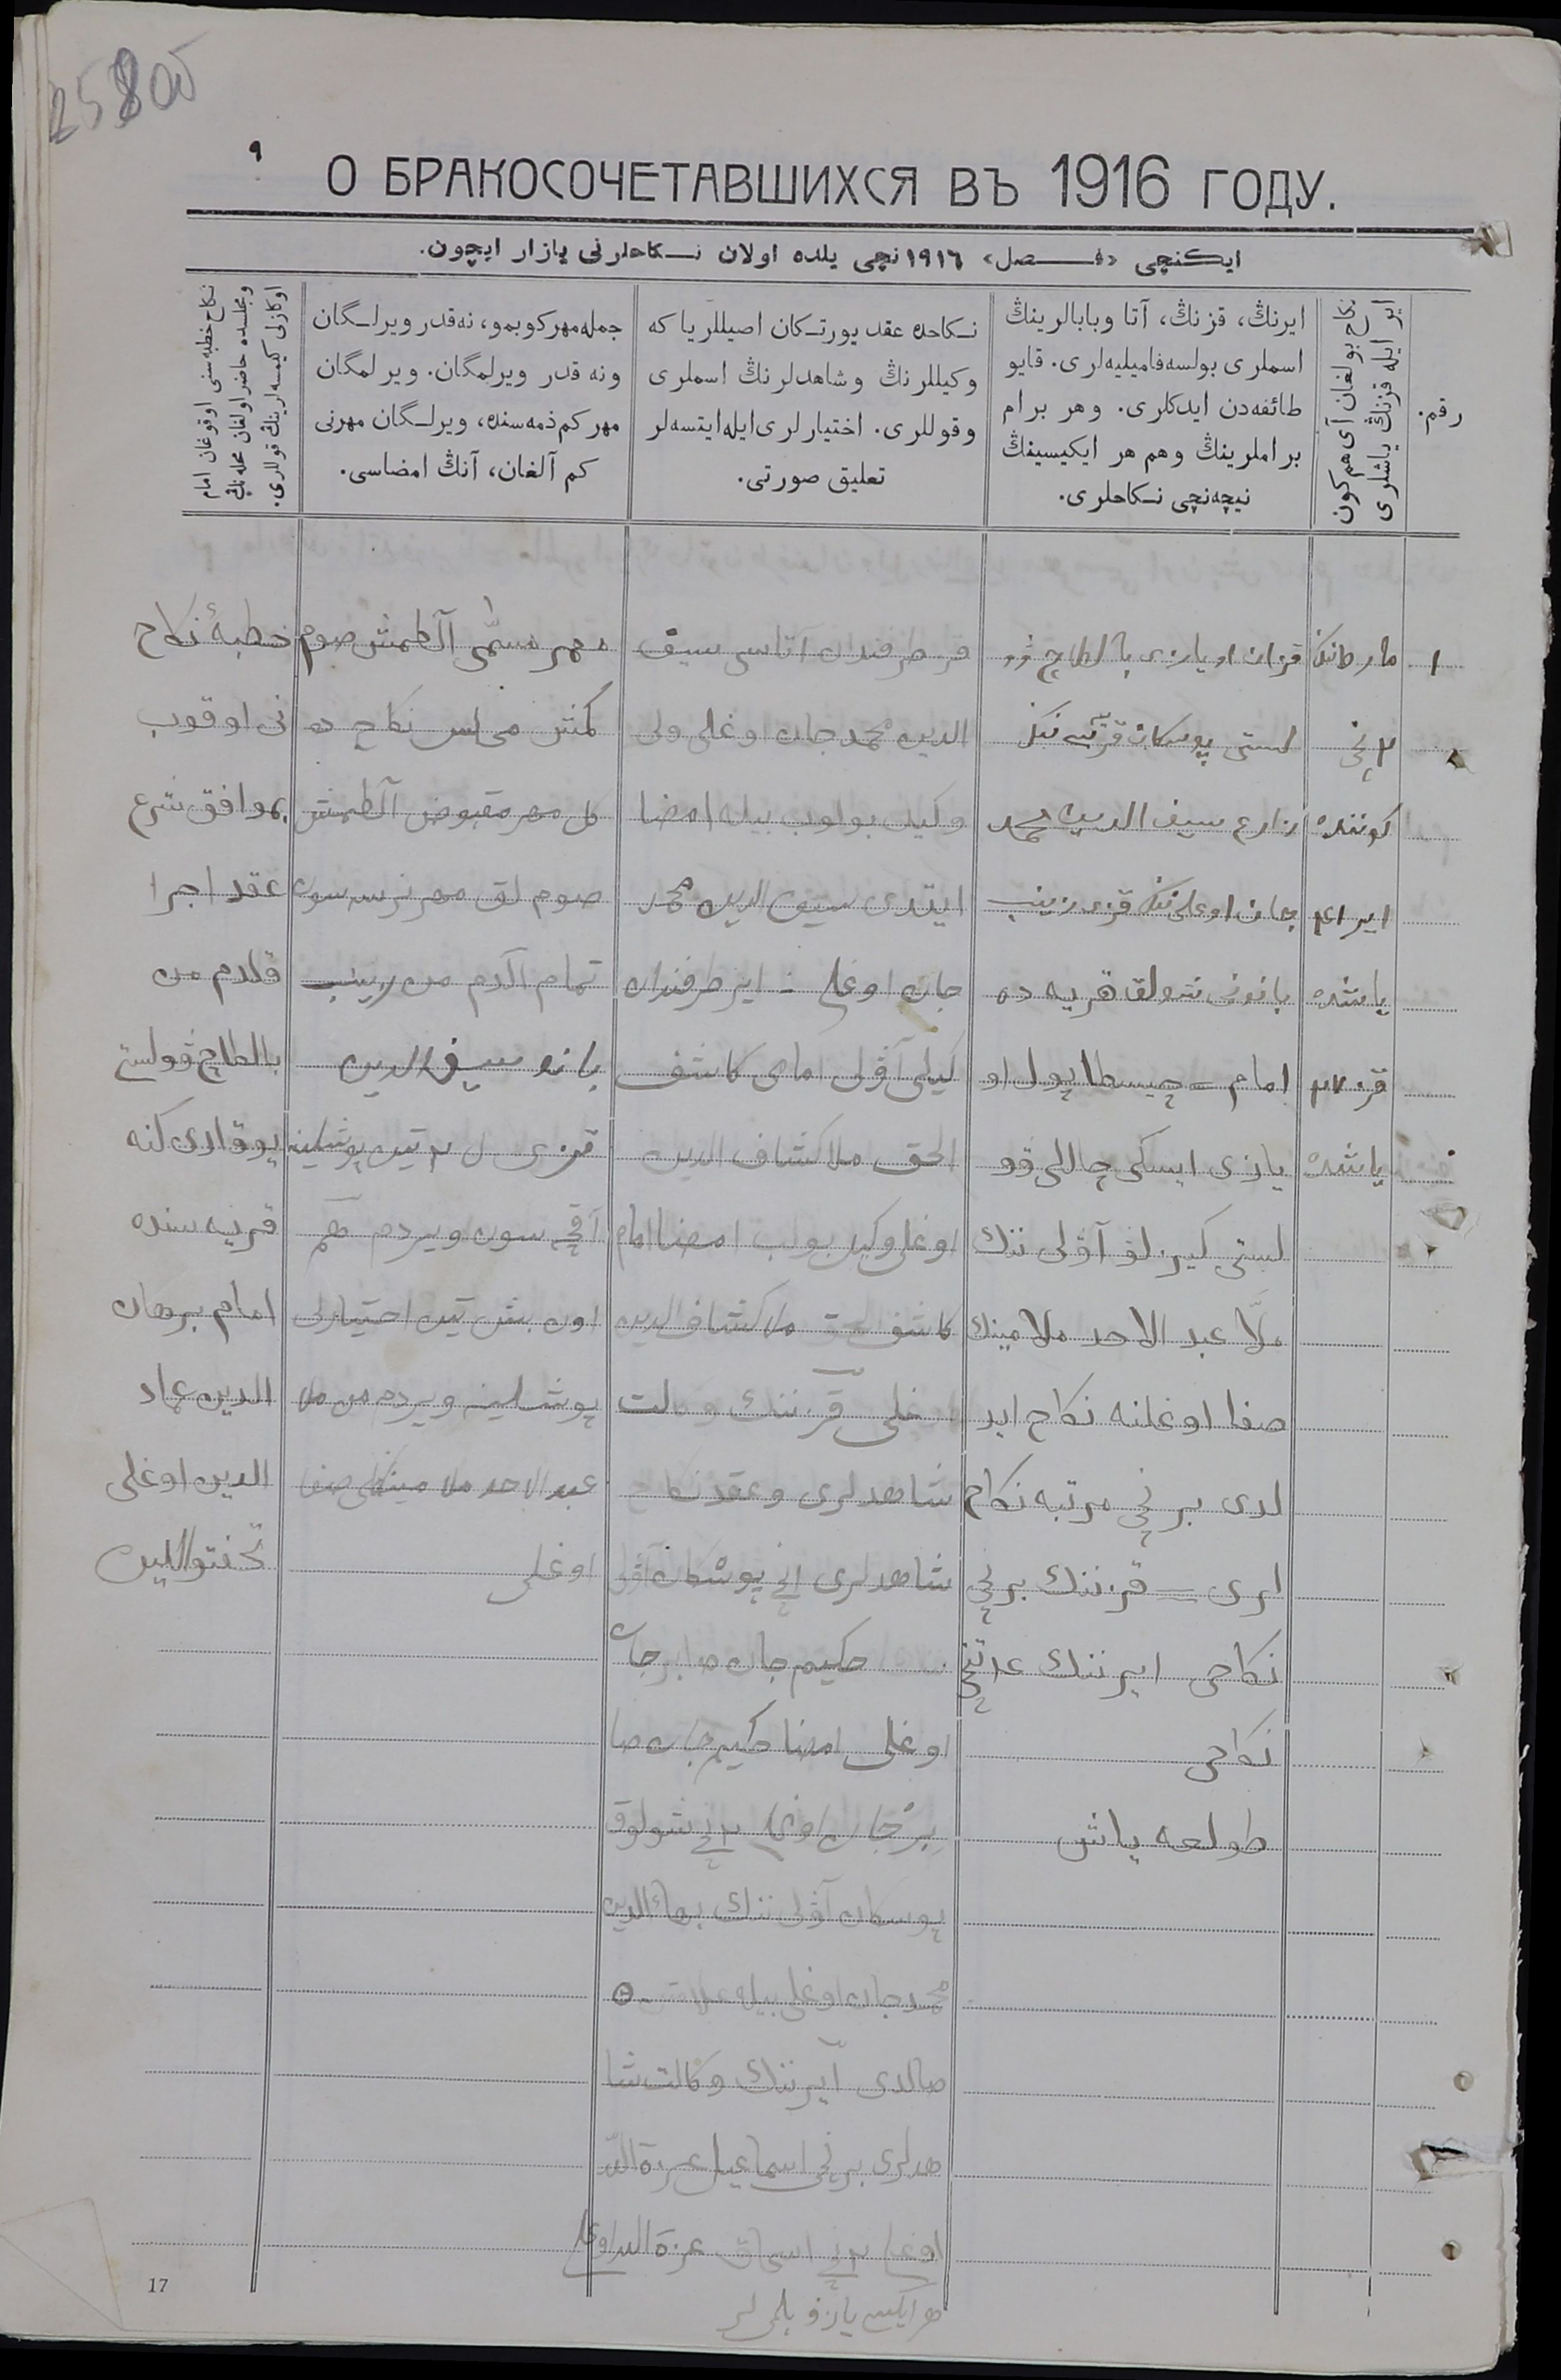 25800
٩
О БРАКОСОЧЕТАВШИХСЯ ВЪ 1916 ГОДУ.
ایکنچی «فصل» ١٩١٦ نچی یلده اولان نکاحلرنی یازار ایچون.
رقم.
ایر ایله قزنڭ یاشلری
نکاح بولغان آی هم کون
ایرنڭ، قزنڭ، آتا وبابالرینڭ
اسملری بولسه فامیلیه‌لری. قایو
طائفه‌دن ایدکلری. وهر برام
براملرینڭ وهم هر ایکیسینڭ
نیچه‌نچی نکاحلری.
نکاحده عقد یورتکان اصیللریا که
وکیللرنڭ وشاهدلرنڭ اسملری
وقوللری. اختیارلری ایله ایتسه‌لر
تعلیق صورتی.
جمله مهر کوبمو، نه‌قدر ویرلگان
ونه قدر ویرلمگان. ویرلمگان
مهر کم ذمه‌سنده، ویرلگان مهرنی
کم آلغان، آنڭ امضاسی.
نکاح خطبه‌سنی اوقوغان امام
ومجلسده حاضر اولغان محله‌نڭ
اوکازلی کیمسه‌لرینڭ قوللری.
١
مارطانڭ
٢ نچی
کوننده
ایر ٤١
یاشده
قز ٢٧
یاشده
قزان اویازی بالطاچ ڤو
لستی پوسکان قریه نڭ
زارع سیف الدین محمد
جان اوغلی نڭ قزی زینب
بانونی شولق قریه ده
امام چیسطاپول او
یازی ایسکی چاللی ڤو
لستی کیزلاو آڤلی ننك
ملّا عبد الاحد ملا مینك
صفا اوغلنه نکاح اید
لدی برنچی مرتبه نکاح
لری قزننك برنچی
نکاحی ایرننك
نکاحی
یاش
قز طرفندان آتاسی سیف
الدین محمد جان اوغلی ولی
وکیل بولوب بیله امضا
ایتدی سیف الدین محمد
جان اوغلی ایر طرفندان
وکیلی آڤل امامی کاشف
الحق ملا کشاف الدین
اوغلی وکیل بولب امضا امام
کاشف الحق ملا کشاف الدین
اوغلی قزننك وکالت
شاهدلری وعقد نکاح
شاهدلری ١نچی پوسکان آڤلی
حکیم جان صابر جان
اوغلی امضا حکیم جان صا
بر جان اوغلی ٢نچی شولوق
پوسکان آڤلی ننك بهاء الدین
محمد جان اوغلی بیله علامتین
صالدی ایرننك وکالت شا
هدلری برنچی اسماعیل عزة الله
اوغلی ٢نچی اسحاق عزة الله اوغلی
هر ایکیسی یازو بلمی لر
مهر مسمّی آلطمش صوم
کمش مجلس نکاح ده
کل مهر مقبوض آلطمش
صوم لق مهر نرسه سون
تمام آلدم من زینب
بانو سیف الدین
قزی
آقچه سون ویردم هم
اون بش تین احتیارلی
پوشلینه ویردم من ملا
عبد الاحد ملا مینکلی صفا
اوغلی
خطبهٔ نکاح
نی اوقوب
بموافق شرع
عقد اجرا
قلدم من
بالطاچ ڤولستی
یوقاری کنه
قریه سنده
امام برهان
الدین عماد
الدین اوغلی
17